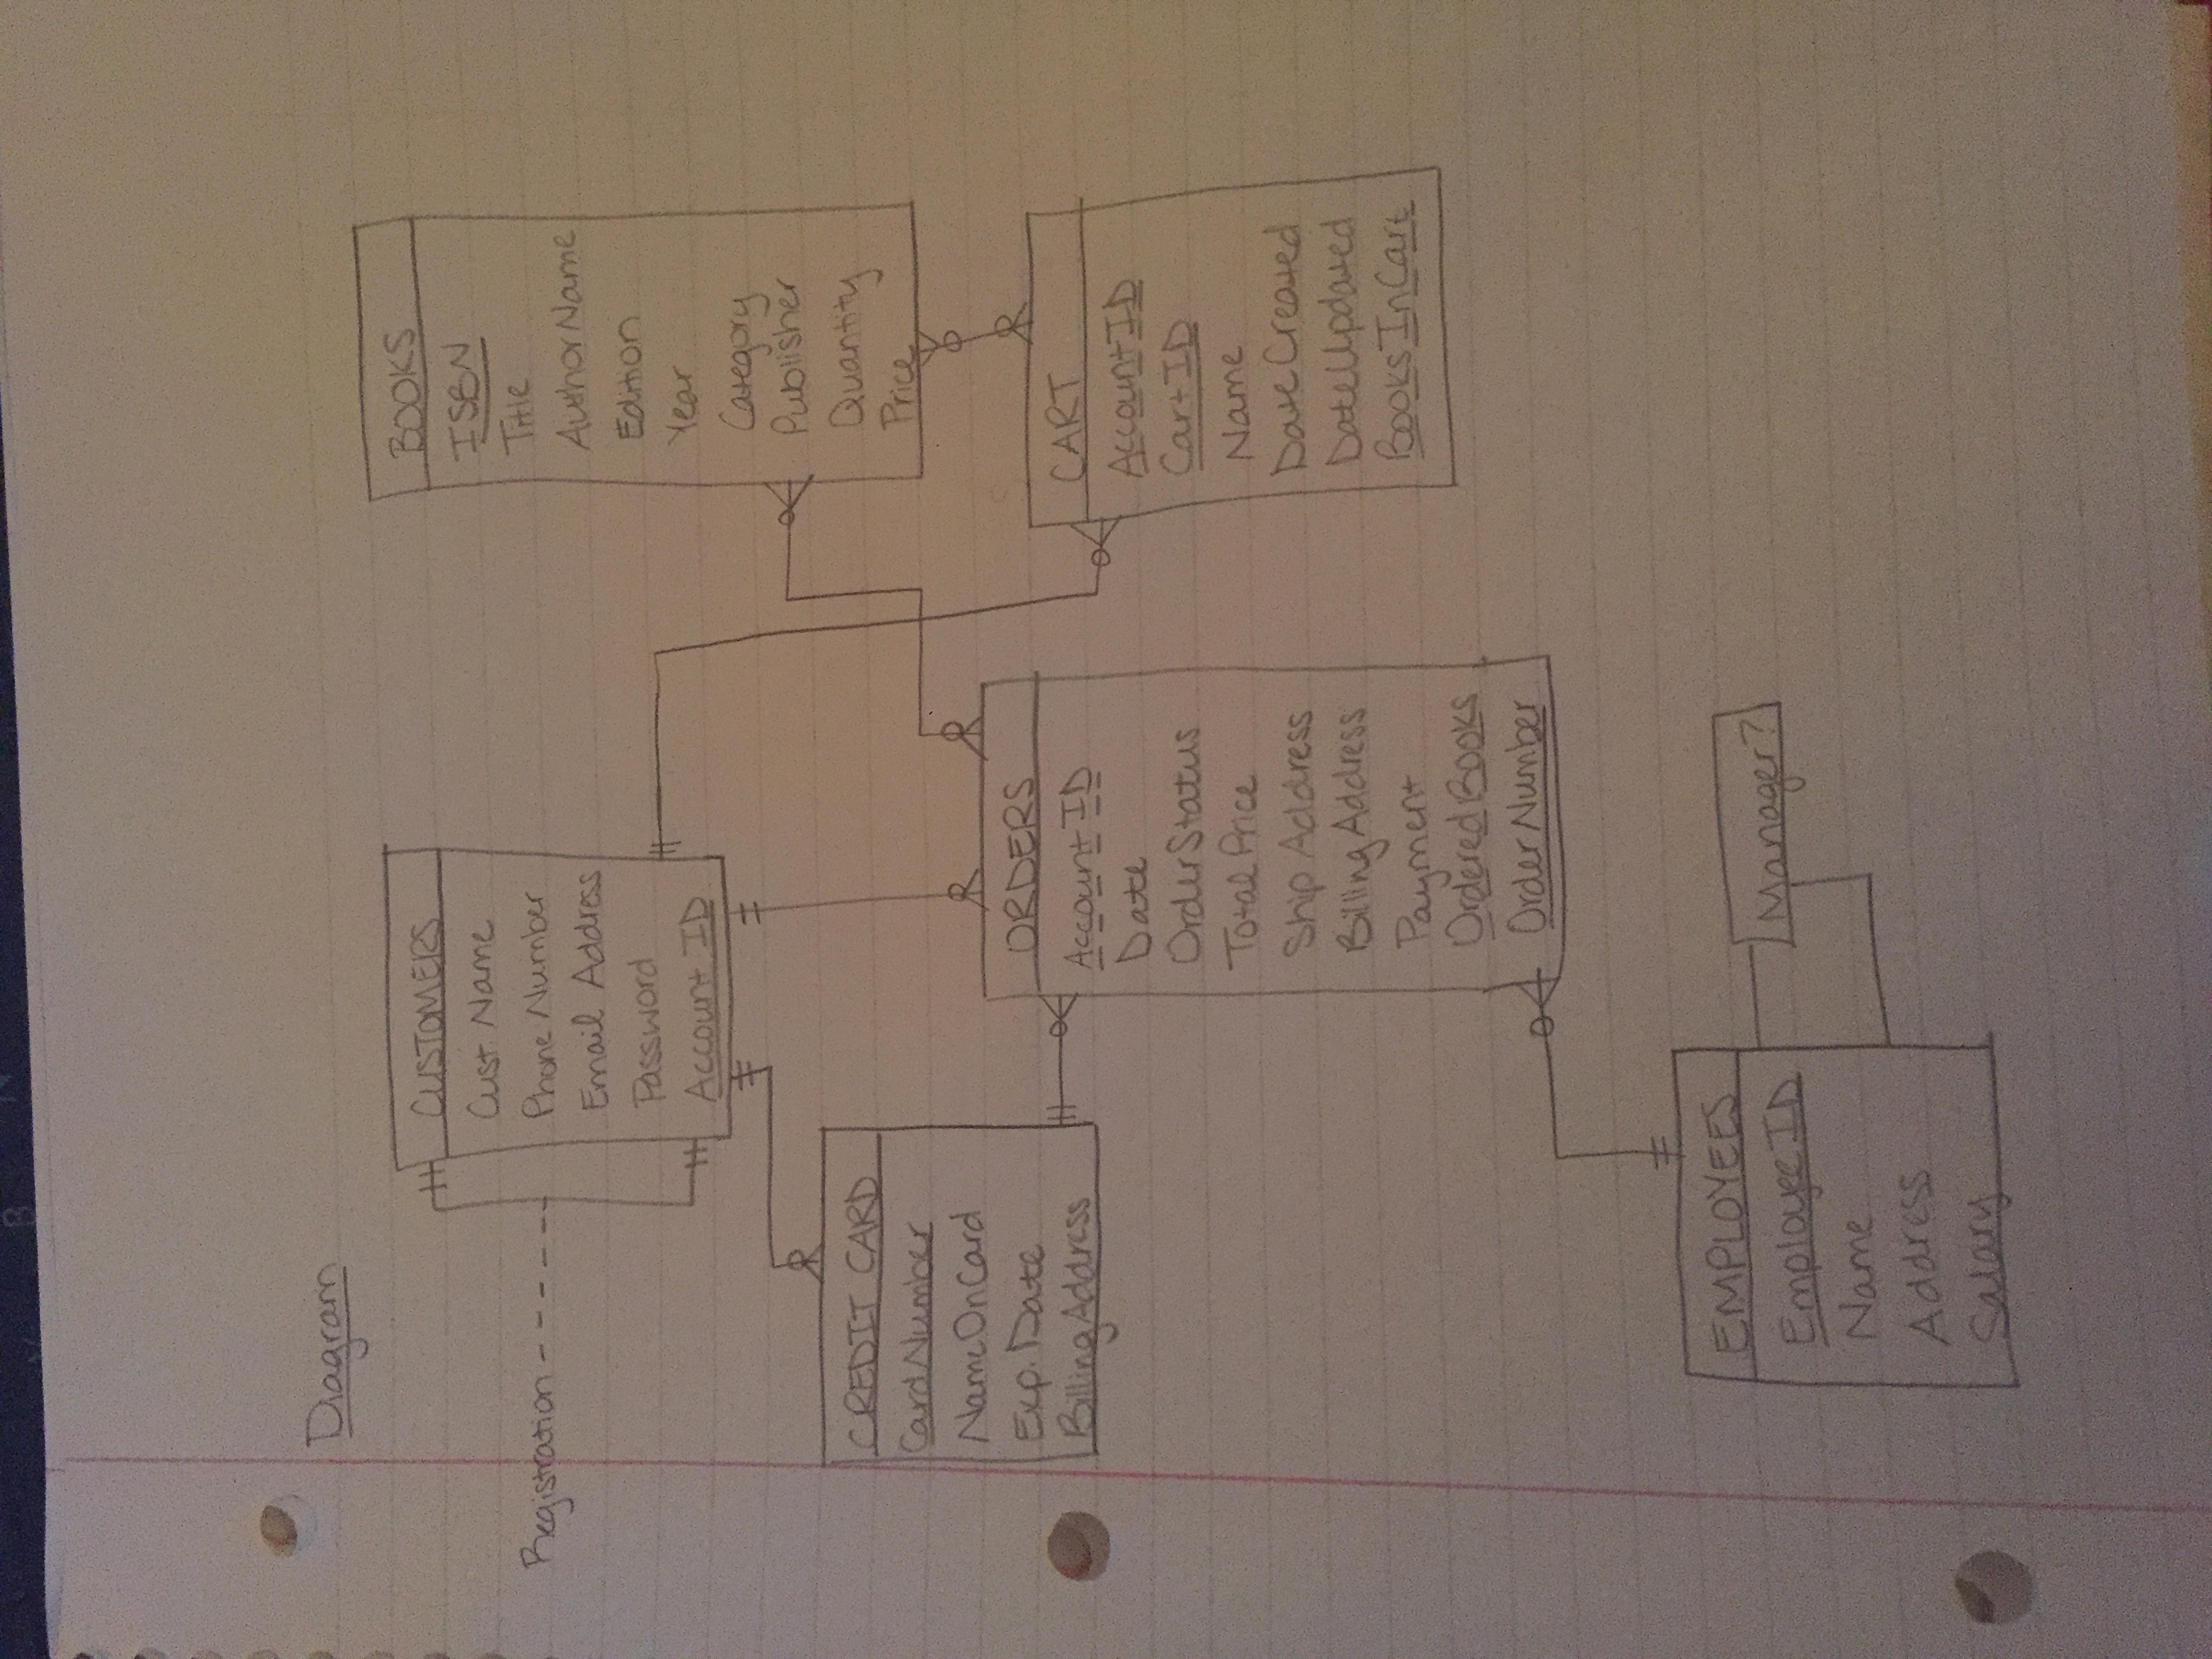 Diagram
CUSTOMERS
Cust. Name
Phone Number
Email Address
Password
Account ID
Registration
BOOKS
ISBN
Title
AuthorName
Edition
Year
Category
Publisher
Quantity
Price
CREDIT CARD
CardNumber
NameOnCard
Exp. Date
BillingAddress
ORDERS
Account ID
Date
OrderStatus
Total Price
Ship Address
Billing Address
Payment
OrderedBooks
OrderNumber
CART
AccountID
CartID
Name
DateCreated
DateUpdated
BooksInCart
EMPLOYEES
EmployeeID
Name
Address
Salary
Manager?